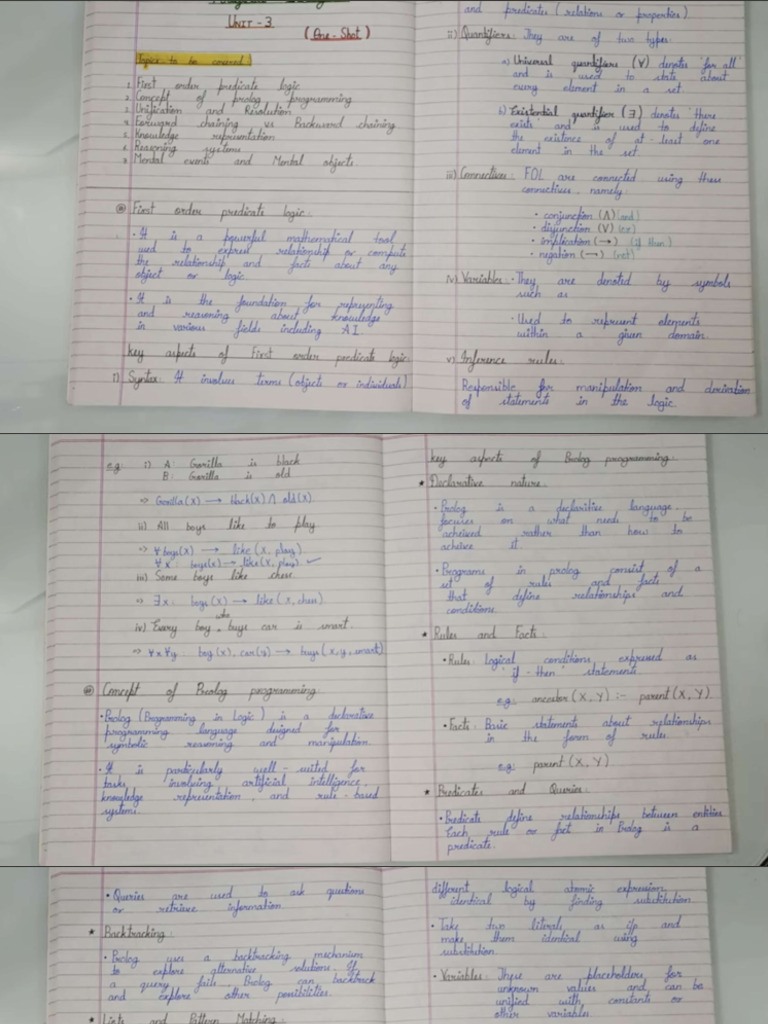 UNIT - 3
(One-Shot)
Topics to be covered
1. First order predicate logic
2. Concept of prolog programming
3. Unification and Resolution
4. Forward chaining vs Backward chaining
5. Knowledge representation
6. Reasoning systems
7. Mental events and Mental objects.
First order predicate logic:
• It is a powerful mathematical tool
used to express relationship or compute
the relationship and facts about any
object or logic
• It is the foundation for representing
and reasoning about knowledge
in various fields including AI.
key aspects of First order predicate logic:
i) Syntax: It involves terms (objects or individuals)
and predicates (relations or properties)
ii) Quantifiers: They are of two types:
a) Universal quantifiers (∀) denotes 'for all'
and is used to state about
every element in a set.
b) Existential quantifier (∃) denotes 'there
exists' and is used to define
the existence of at-least one
element in the set.
iii) Connectives: FOL are connected using these
connectives, namely:
• conjunction (∧) (and)
• disjunction (∨) (or)
• implication (→) (if then)
• negation (¬) (not)
iv) Variables: • They are denoted by symbols
such as
• Used to represent elements
within a given domain.
v) Inference rules:
Responsible for manipulation and derivation
of statements in the logic.
e.g: i) A: Gorilla is black
B: Gorilla is old
⇒ Gorilla(x) → black(x) ∧ old(x)
ii) All boys like to play
⇒ ∀ boys(x) → like (x, play)
∀x: boys(x) → like(x, play) ✓
iii) Some boys like chess
⇒ ∃x: boys(x) → like (x, chess)
iv) Every boy who buys car is smart.
⇒ ∀x∀y: boy(x), car(y) → buys(x,y,smart)
Concept of Prolog programming:
• Prolog (Programming in Logic) is a declarative
programming language designed for
symbolic reasoning and manipulation
• It is particularly well-suited for
tasks involving artificial intelligence,
knowledge representation, and rule-based
systems.
key aspects of Prolog programming:
★ Declarative nature:
• Prolog is a declaritive language.
focuses on what needs to be
acheived rather than how to
acheive it.
• Programs in prolog consist of a
set of rules and facts
that define relationships and
conditions.
★ Rules and Facts:
• Rules: Logical conditions expressed as
'if-then' statements.
e.g: ancestor (X, Y) :- parent (X, Y)
• Facts: Basic statements about relationships
in the form of rules.
e.g: parent (X, Y)
★ Predicates and Queries:
• Predicate define relationships between entities.
Each rule or fact in Prolog is a
predicate.
• Queries are used to ask questions
or retrieve information.
★ Backtracking:
• Prolog uses a backtracking mechanism
to explore alternative solutions. If
a query fails Prolog can backtrack
and explore other possibilities.
★ Lists and Pattern Matching:
different logical atomic expression
identical by finding substitution.
• Take two literals as i/p and
make them identical using
substitution.
• Variables: These are placeholders for
unknown values and can be
unified with constants or
other variables.